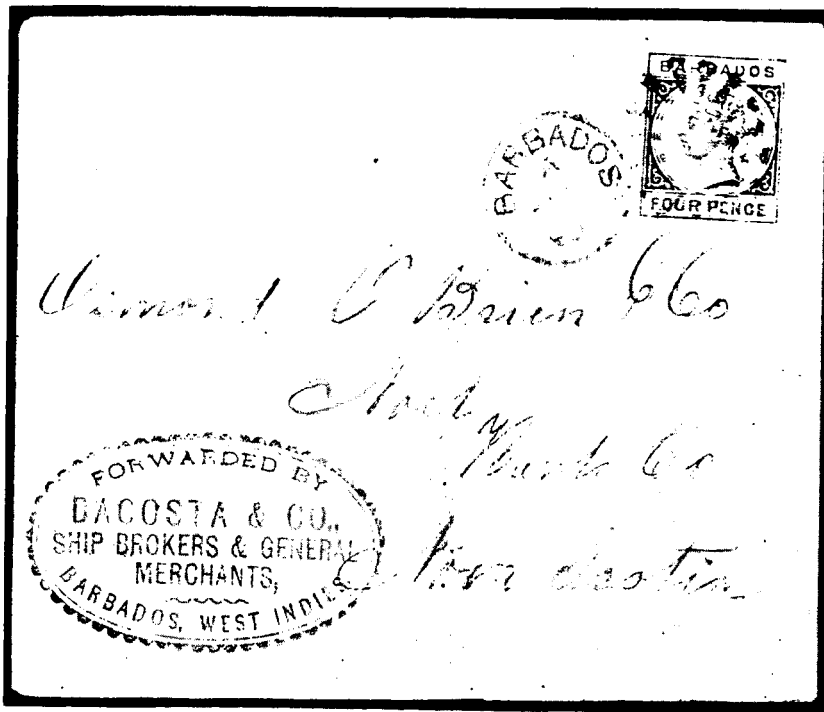 BARBADOS
FOUR PENCE
BARBADOS
Osmond O'Brien & Co
Noel
Hants Co
Nova Scotia
FORWARDED BY
DACOSTA & CO.,
SHIP BROKERS & GENERAL
MERCHANTS,
BARBADOS, WEST INDIES